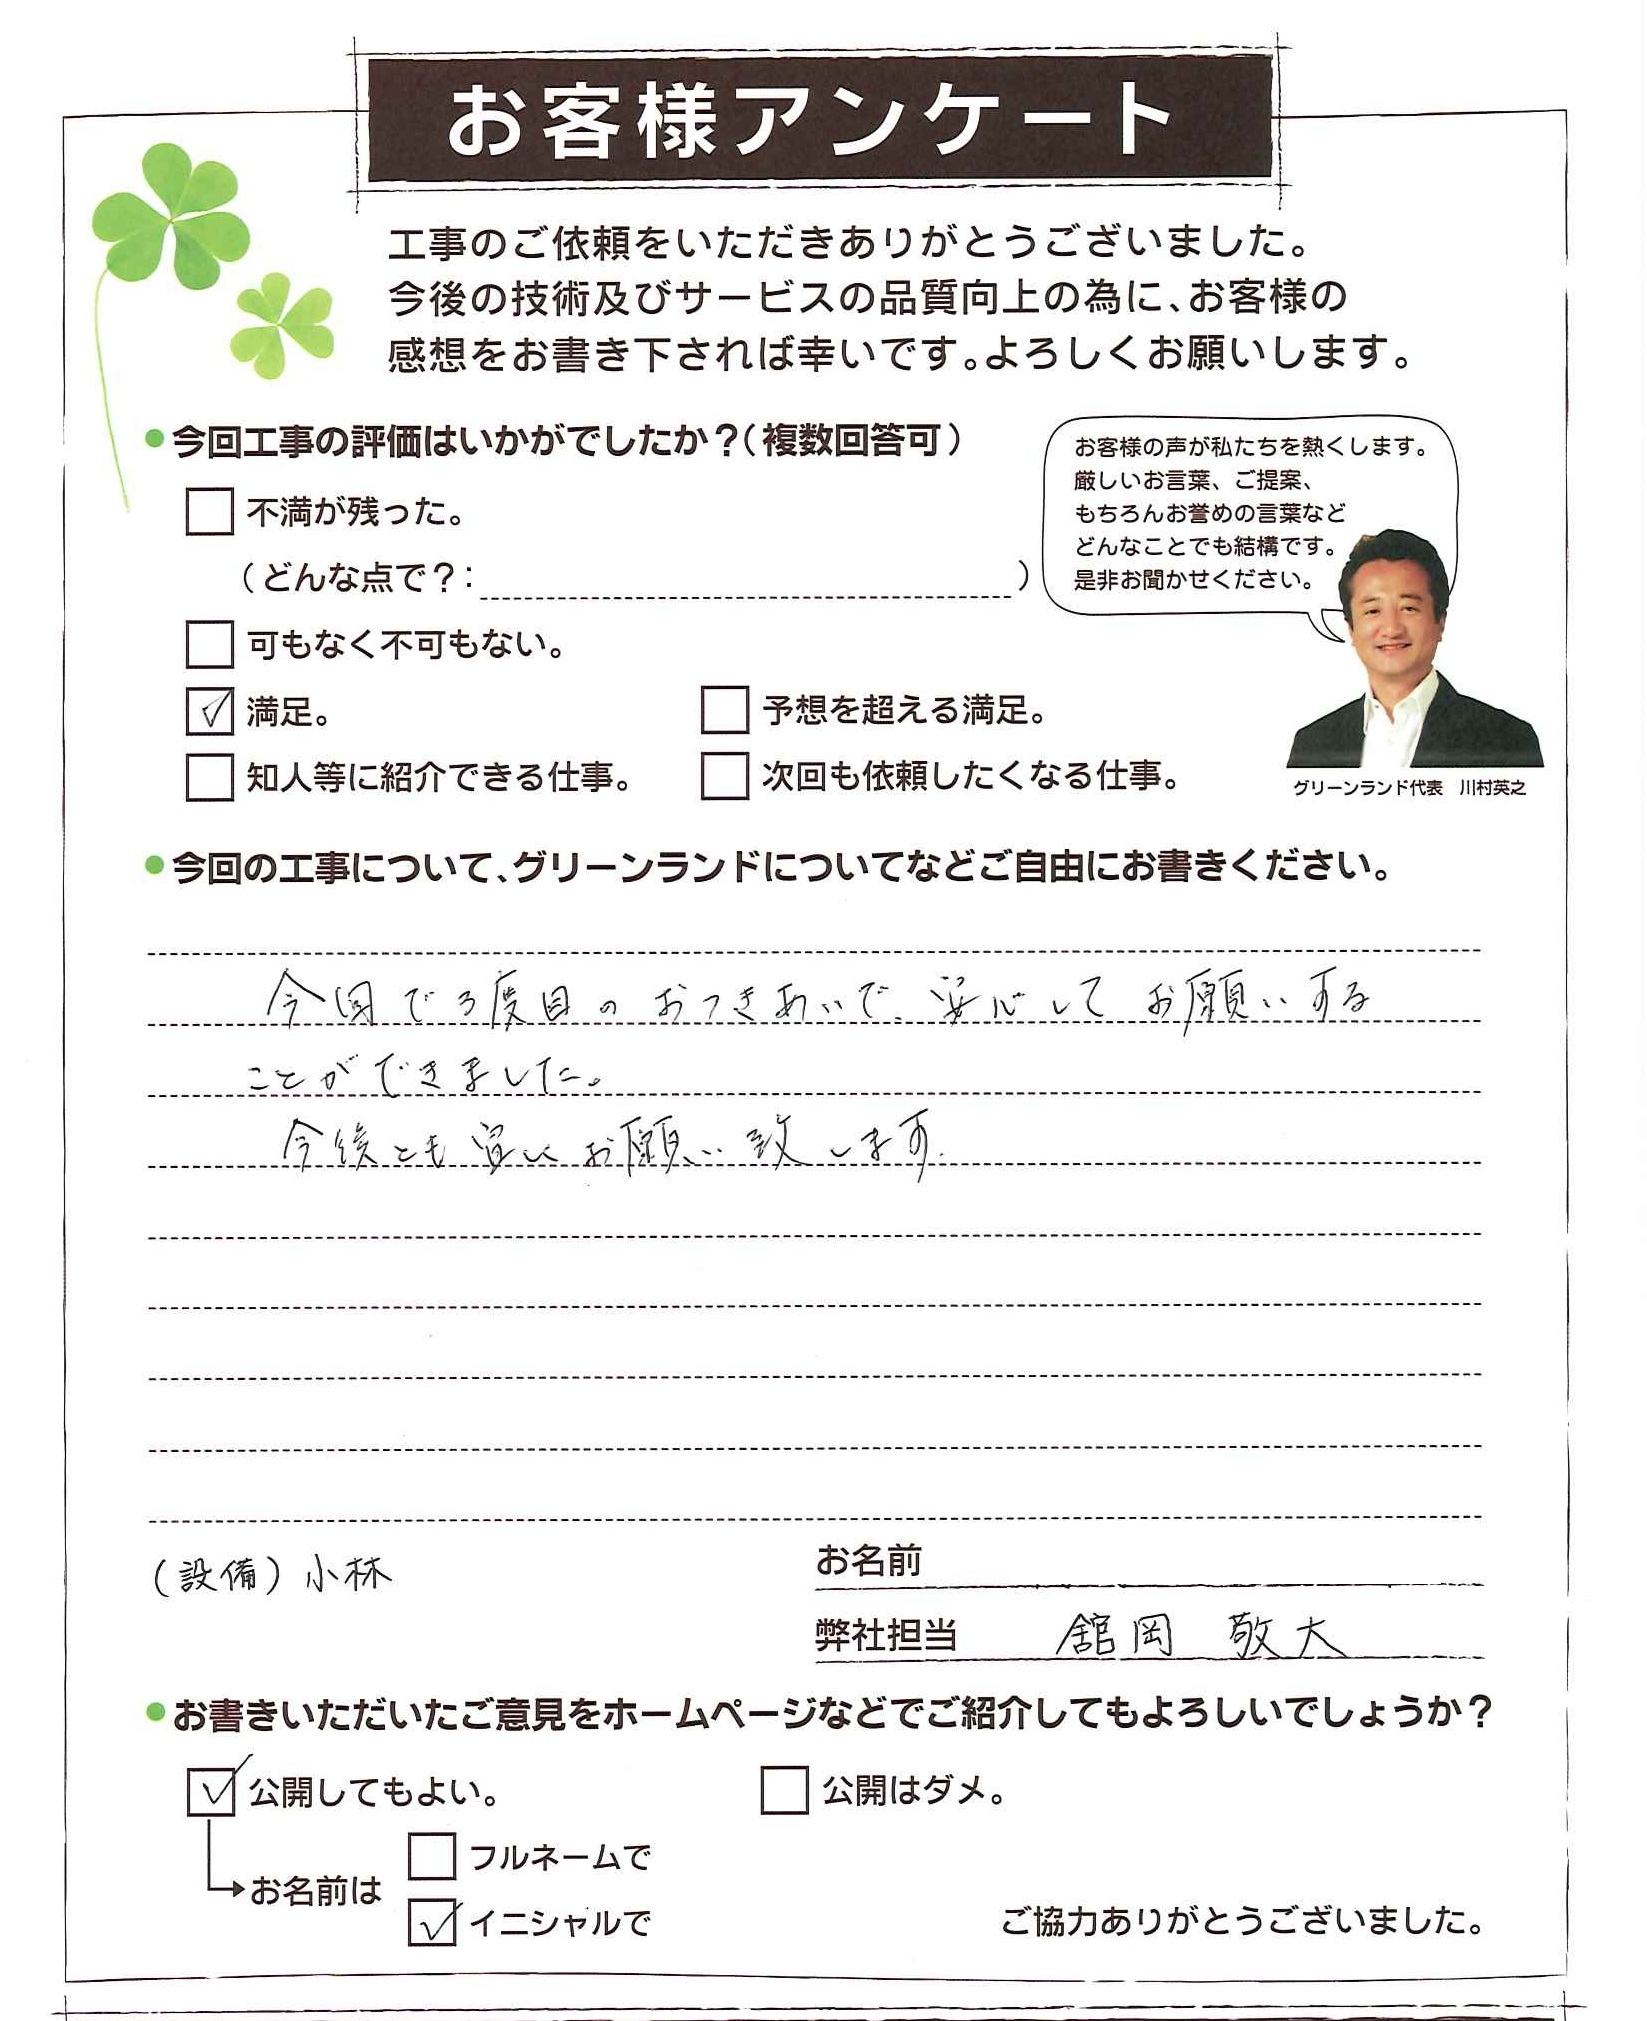 お客様アンケート
工事のご依頼をいただきありがとうございました。
今後の技術及びサービスの品質向上の為に、お客様の
感想をお書き下されば幸いです。よろしくお願いします。
●今回工事の評価はいかがでしたか？（複数回答可）
お客様の声が私たちを熱くします。
厳しいお言葉、ご提案、
もちろんお誉めの言葉など
どんなことでも結構です。
是非お聞かせください。
不満が残った。
（どんな点で？： ）
可もなく不可もない。
満足。
予想を超える満足。
知人等に紹介できる仕事。
次回も依頼したくなる仕事。
グリーンランド代表 川村英之
●今回の工事について、グリーンランドについてなどご自由にお書きください。
今回で3度目のおつきあいで、安心してお願いする
ことができました。
今後とも宜しくお願い致します。
お名前
（設備）小林
弊社担当 舘岡 敬大
●お書きいただいたご意見をホームページなどでご紹介してもよろしいでしょうか？
公開してもよい。
公開はダメ。
フルネームで
お名前は
イニシャルで
ご協力ありがとうございました。